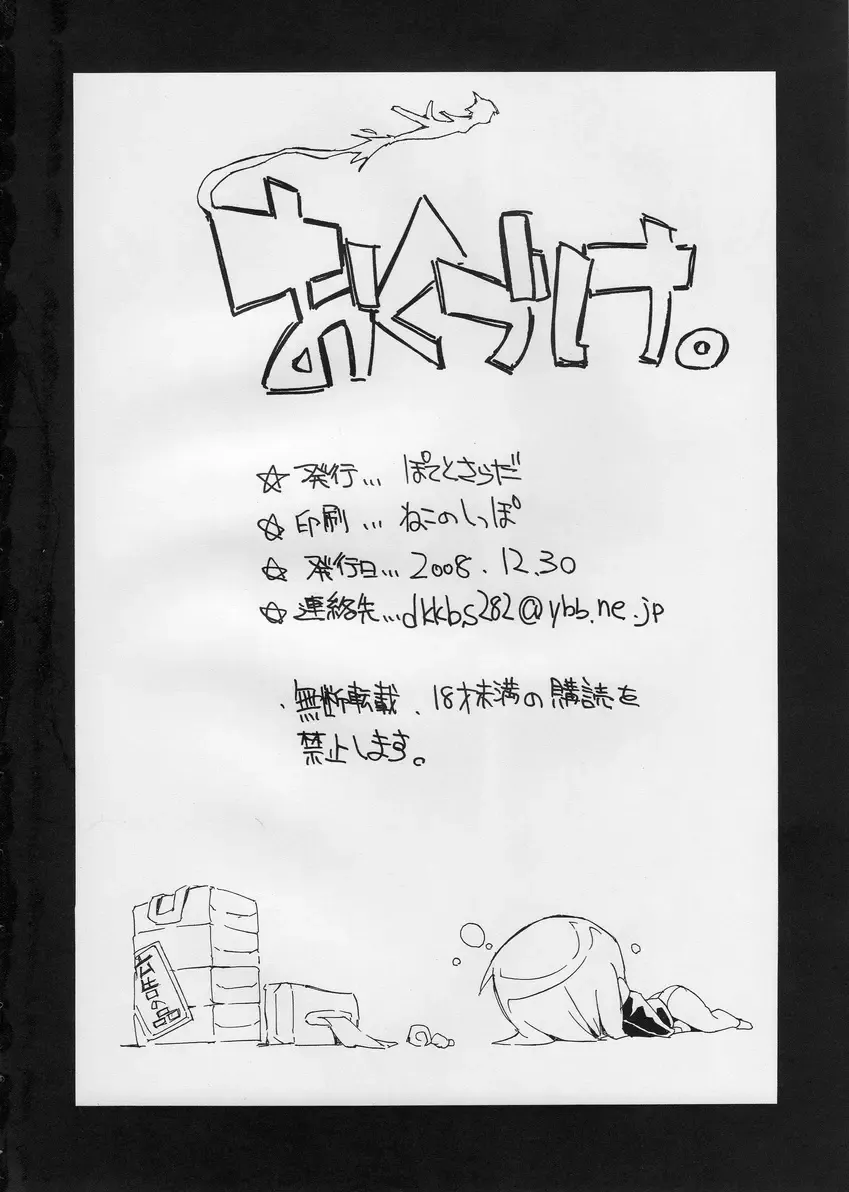 おくづけ。
☆ 発行... ぽてとさらだ
☆ 印刷... ねこのしっぽ
☆ 発行日... 2008.12.30
☆ 連絡先... dkkbs282@ybb.ne.jp
・無断転載、18才未満の購読を
禁止します。
広告の品